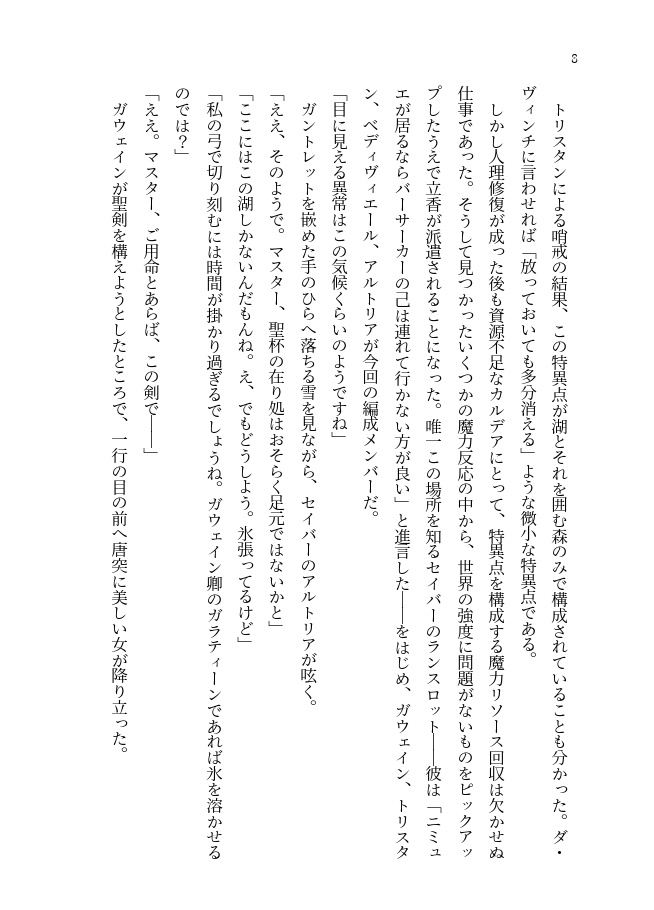 8
　トリスタンによる哨戒の結果、この特異点が湖とそれを囲む森のみで構成されていることも分かった。ダ・
ヴィンチに言わせれば「放っておいても多分消える」ような微小な特異点である。
　しかし人理修復が成った後も資源不足なカルデアにとって、特異点を構成する魔力リソース回収は欠かせぬ
仕事であった。そうして見つかったいくつかの魔力反応の中から、世界の強度に問題がないものをピックアッ
プしたうえで立香が派遣されることになった。唯一この場所を知るセイバーのランスロット――彼は「ニミュ
エが居るならバーサーカーの己は連れて行かない方が良い」と進言した――をはじめ、ガウェイン、トリスタ
ン、ベディヴィエール、アルトリアが今回の編成メンバーだ。
「目に見える異常はこの気候くらいのようですね」
　ガントレットを嵌めた手のひらへ落ちる雪を見ながら、セイバーのアルトリアが呟く。
「ええ、そのようで。マスター、聖杯の在り処はおそらく足元ではないかと」
「ここにはこの湖しかないんだもんね。え、でもどうしよう。氷張ってるけど」
「私の弓で切り刻むには時間が掛かり過ぎるでしょうね。ガウェイン卿のガラティーンであれば氷を溶かせる
のでは？」
「ええ。マスター、ご用命とあらば、この剣で――」
　ガウェインが聖剣を構えようとしたところで、一行の目の前へ唐突に美しい女が降り立った。